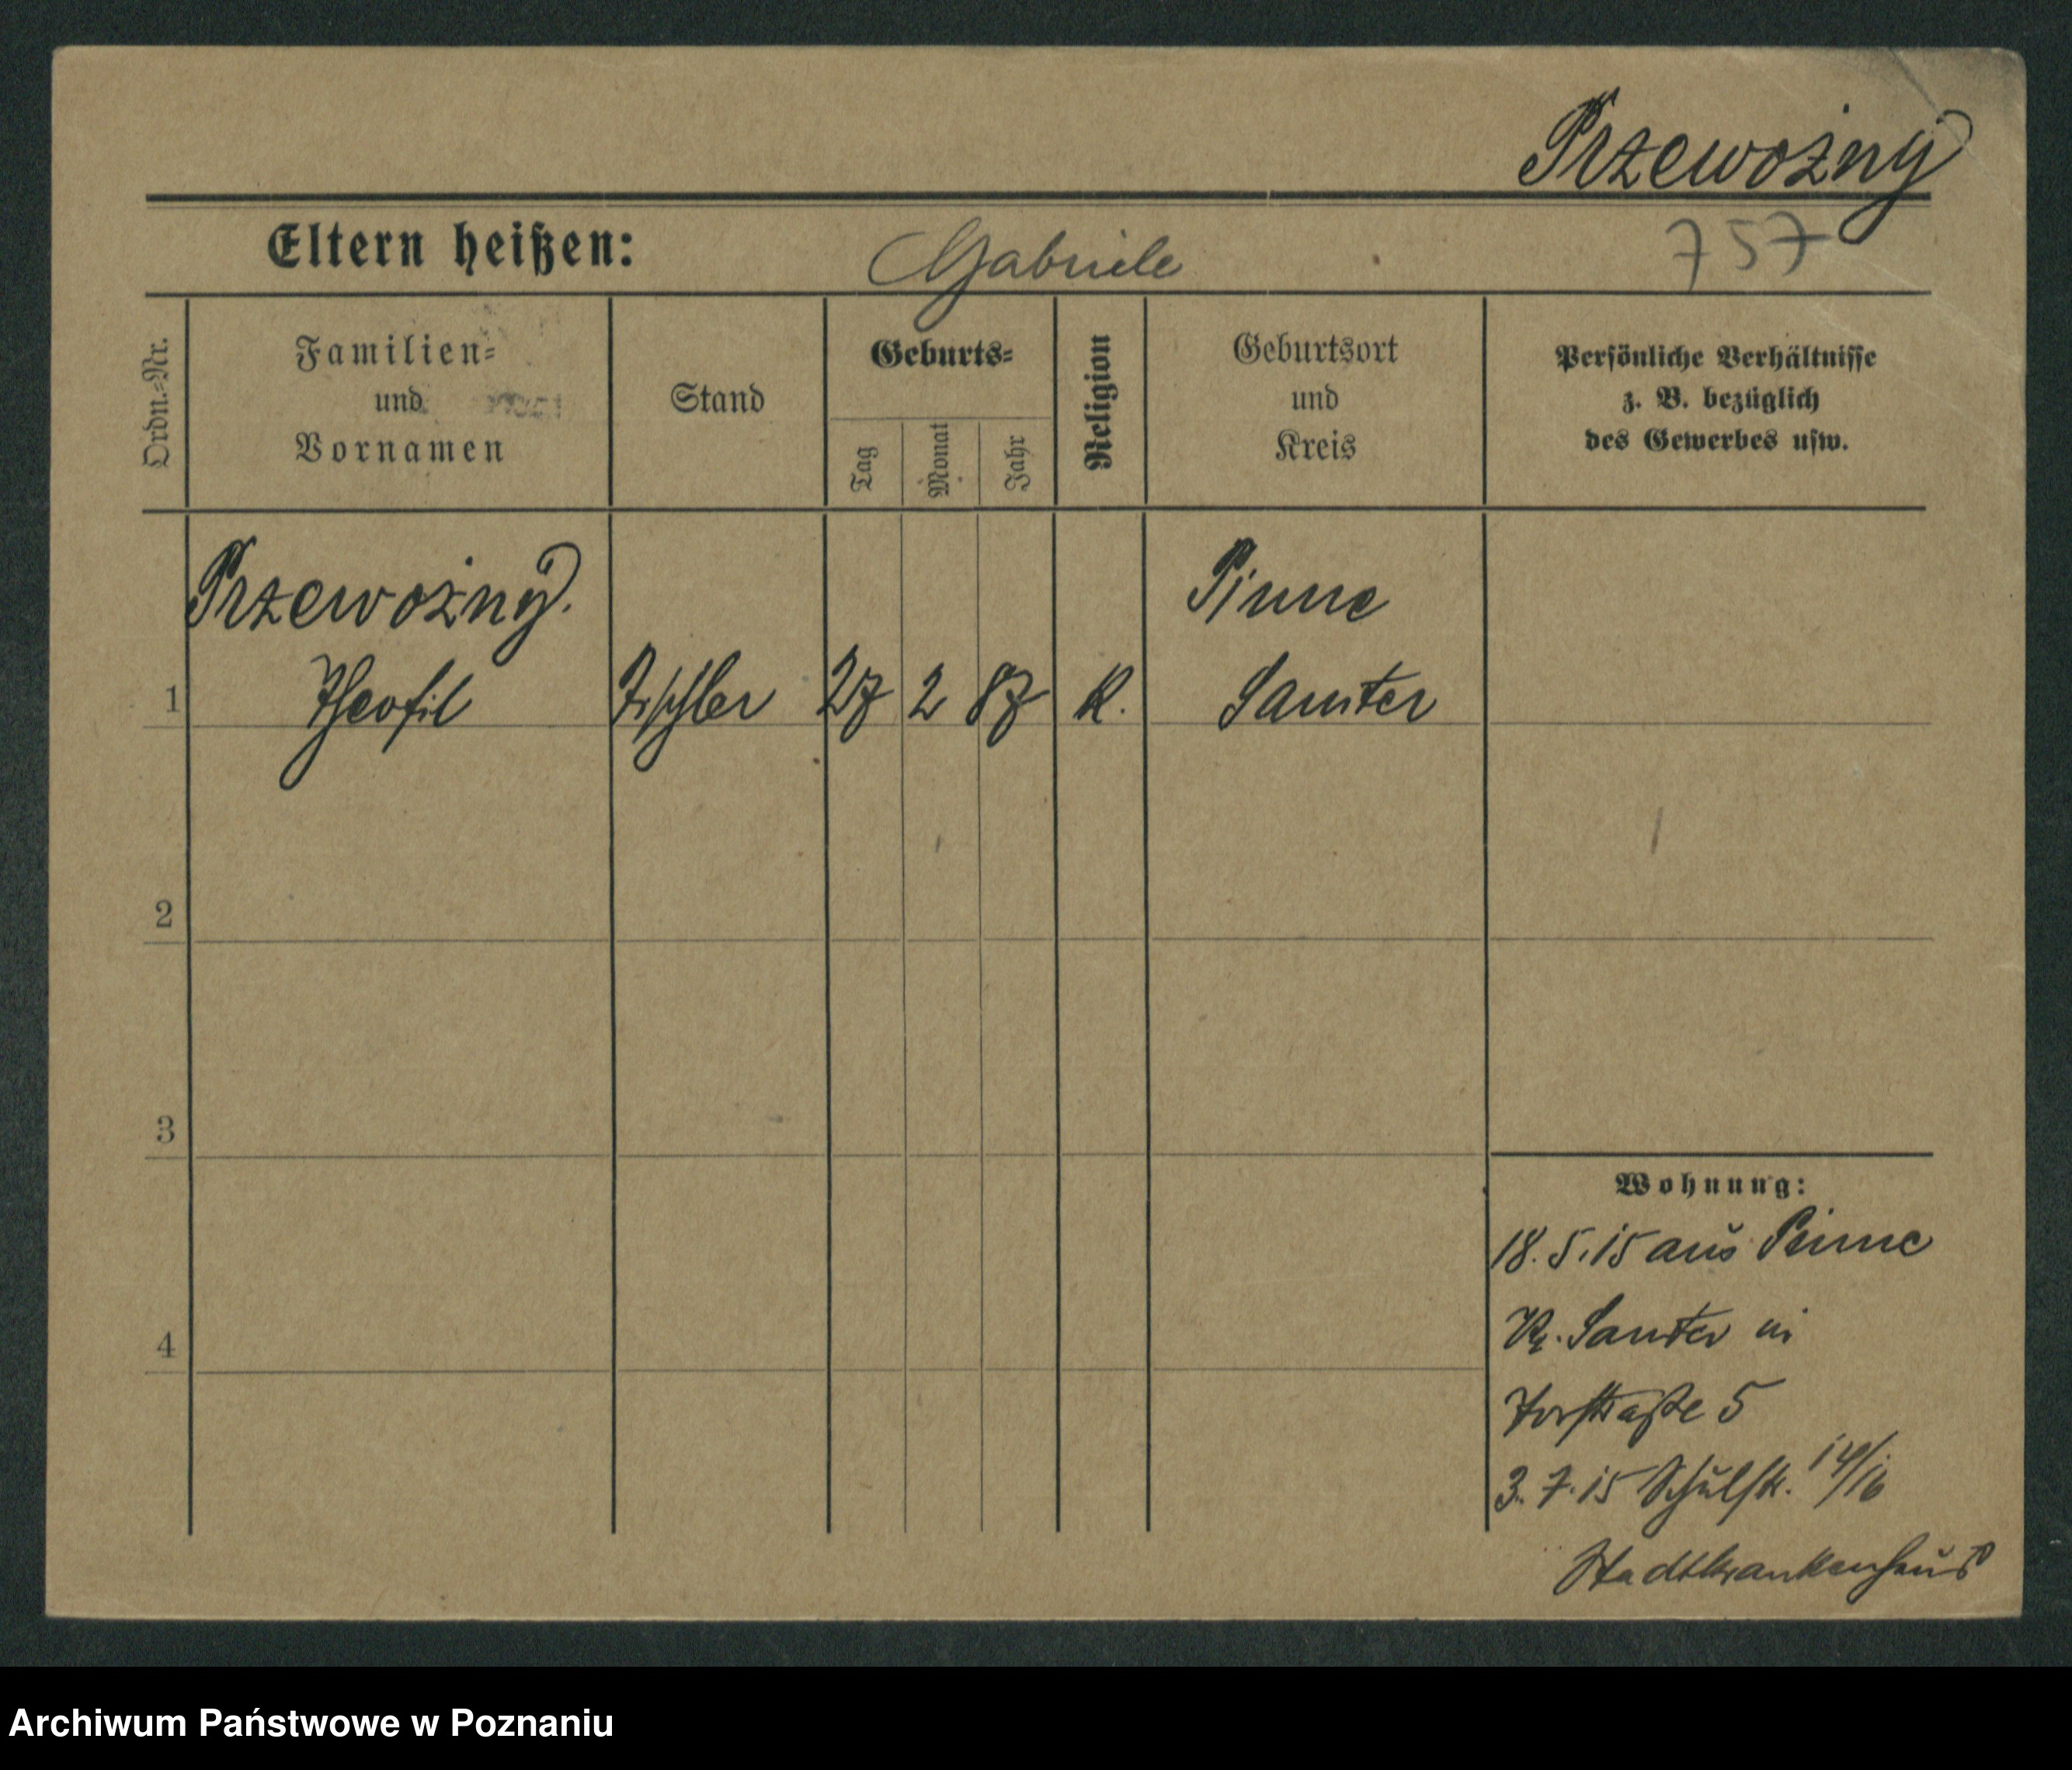 Przewożny
Eltern heißen:
Gabriele
757
Ordn.-Nr.
Familien-
und
Vornamen
Stand
Geburts-
Tag
Monat
Jahr
Religion
Geburtsort
und
Kreis
Persönliche Verhältnisse
z. B. bezüglich
des Gewerbes usw.
Przewożny.
Pinne
1 Theofil Tischler 27 2 87 K. Samter
2
3
4
Wohnung:
18.5.15 aus Pinne
Kr. Samter in
Torstraße 5
3.7.15 Schulstr. 14/16
Stadtkrankenhaus
Archiwum Państwowe w Poznaniu